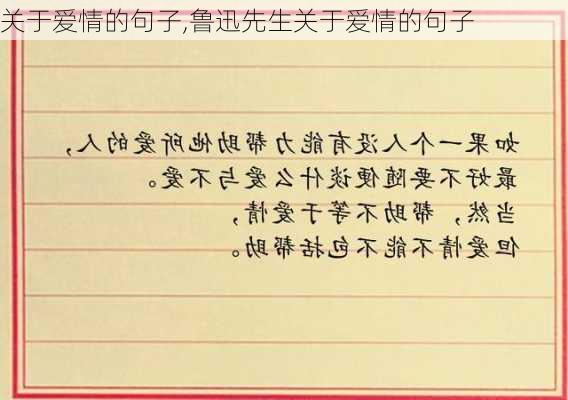 关于爱情的句子,鲁迅先生关于爱情的句子
如果一个人没有能力帮助他所爱的人，
最好不要随便谈什么爱与不爱。
当然，帮助不等于爱情，
但爱情不能不包括帮助。